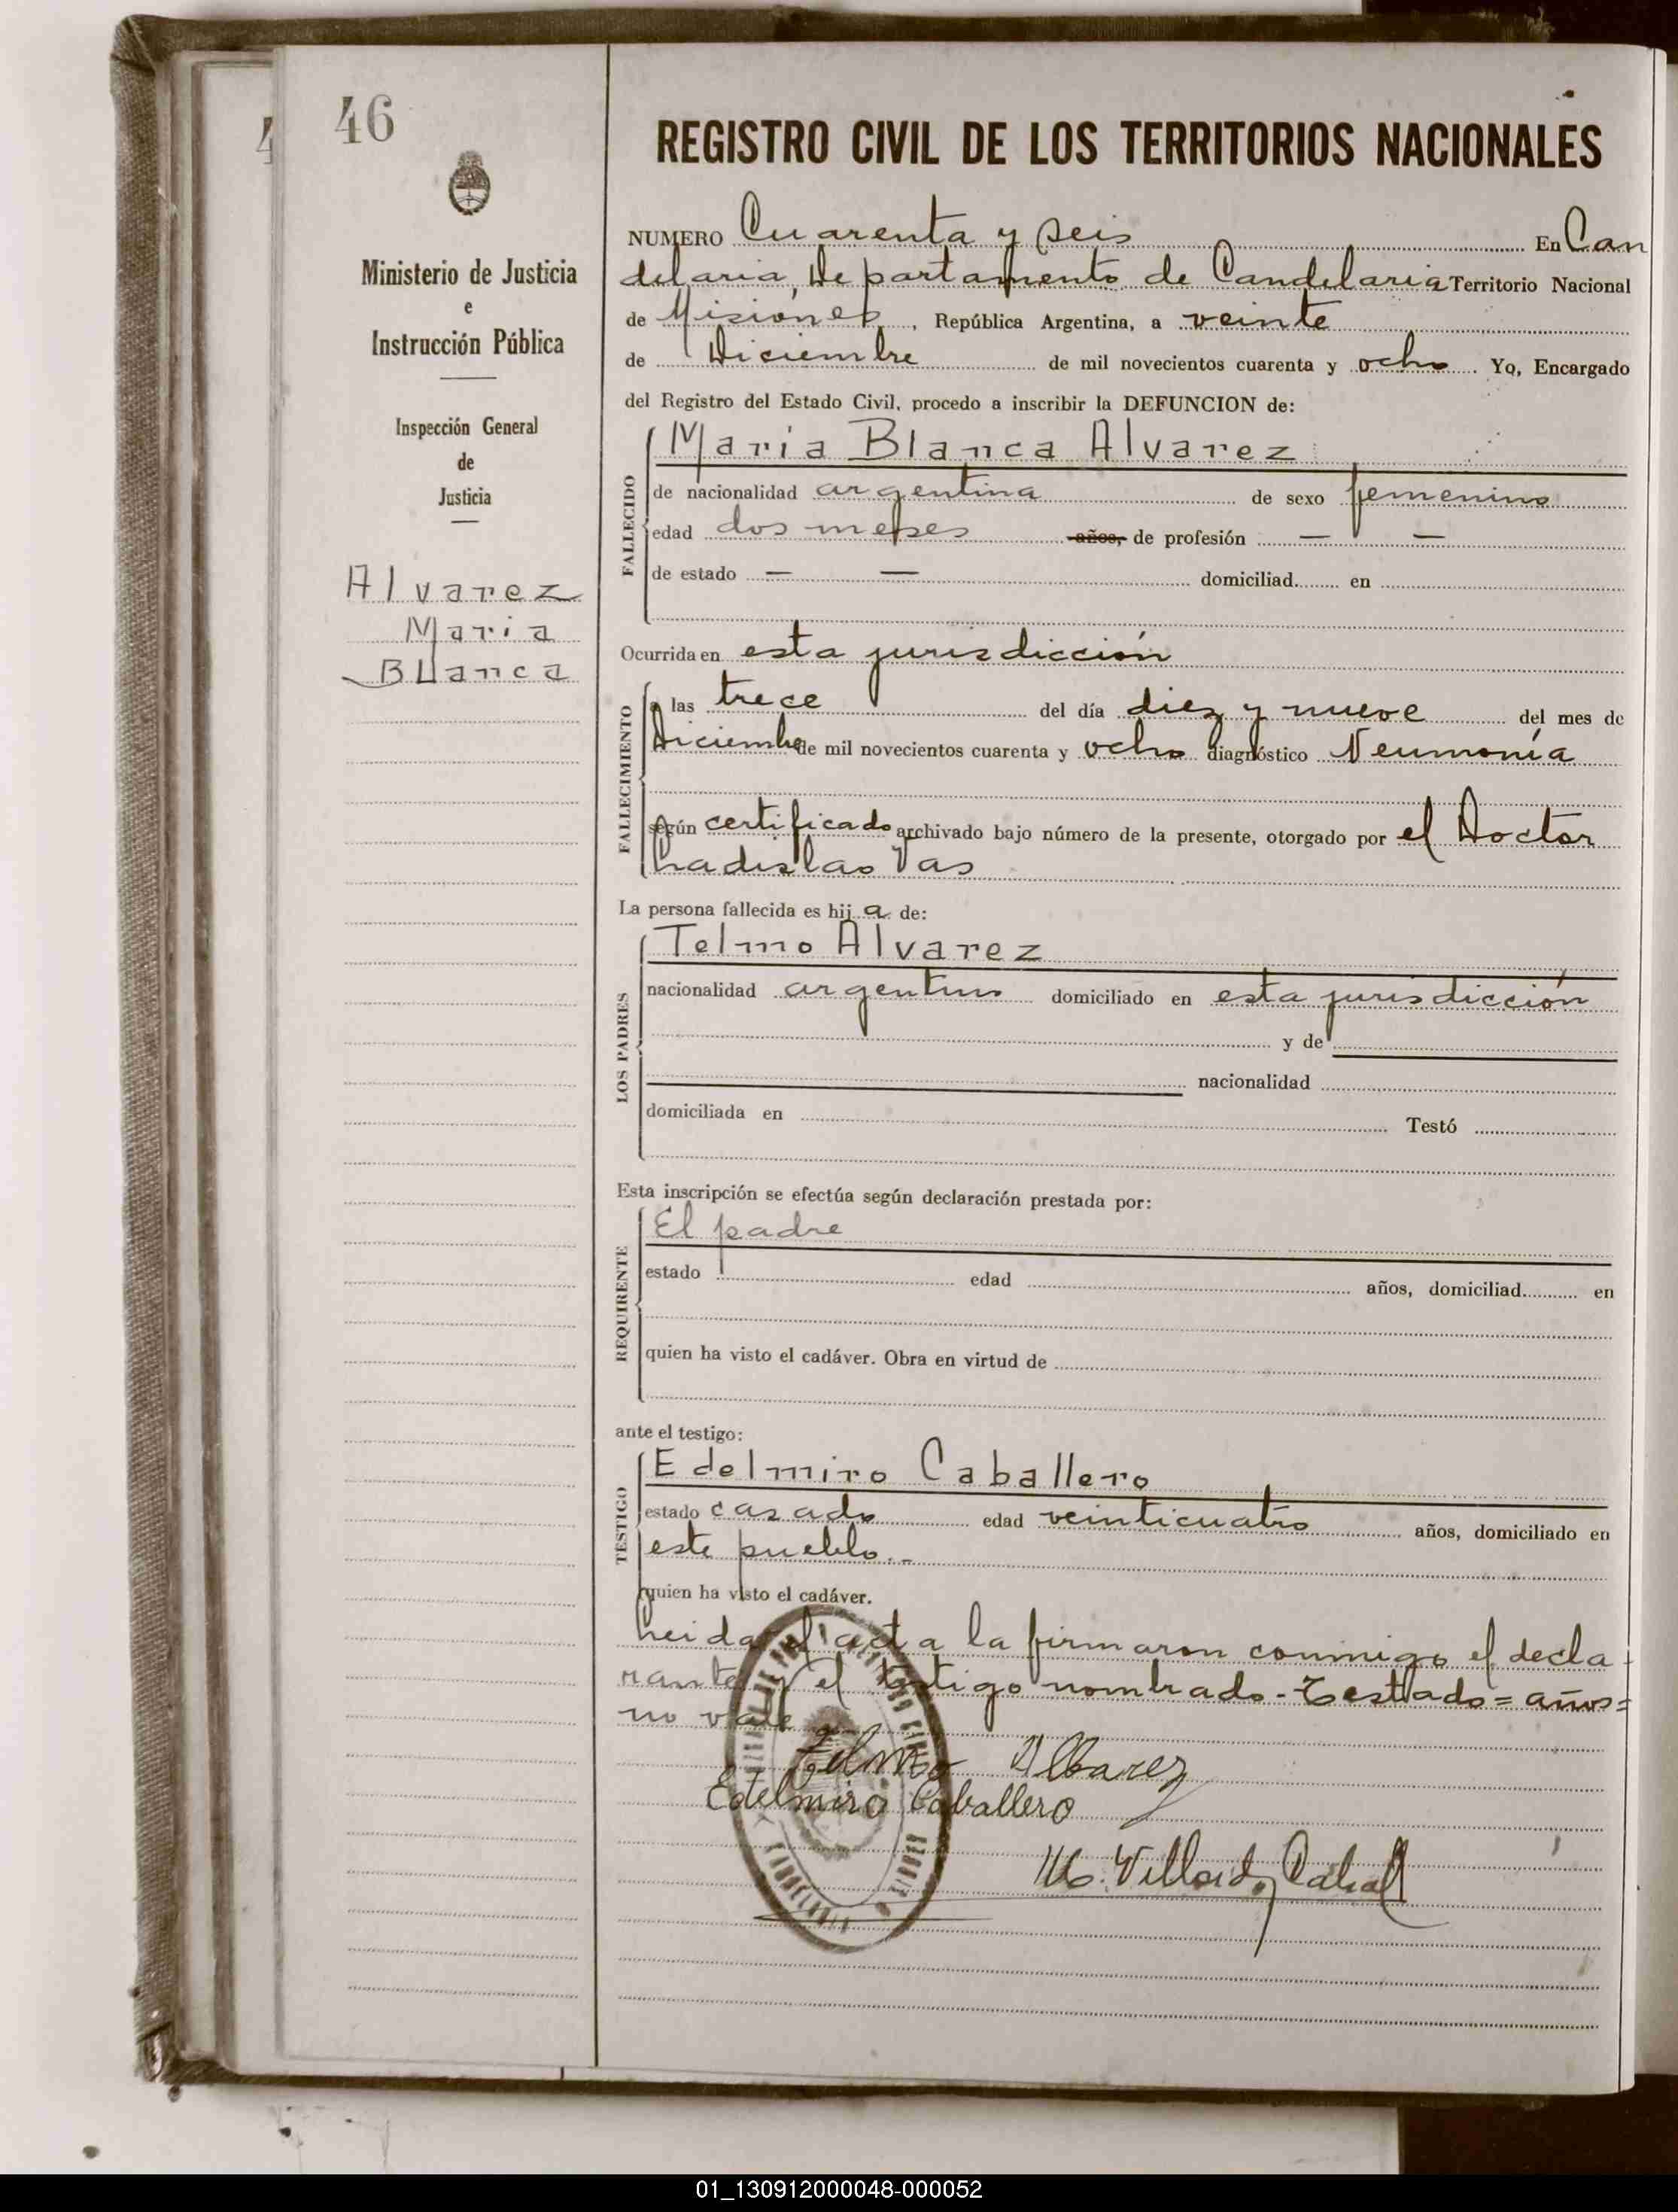 46
Ministerio de Justicia
e
Instrucción Pública
Inspección General
de
Justicia
Alvarez
Maria
Blanca
REGISTRO CIVIL DE LOS TERRITORIOS NACIONALES
NUMERO Cuarenta y seis En Can
delaria, Departamento de Candelaria Territorio Nacional
de Misiones, República Argentina, a veinte
de Diciembre de mil novecientos cuarenta y ocho Yo, Encargado
del Registro del Estado Civil, procedo a inscribir la DEFUNCION de:
FALLECIDO
Maria Blanca Alvarez
de nacionalidad argentina de sexo femenino
edad dos meses años, de profesión — —
de estado — — domiciliad en
Ocurrida en esta jurisdicción
FALLECIMIENTO
a las trece del día diez y nueve del mes de
Diciembre de mil novecientos cuarenta y ocho diagnóstico Neumonía
según certificado archivado bajo número de la presente, otorgado por el Doctor
Ladislao Vas
La persona fallecida es hija de:
LOS PADRES
Telmo Alvarez
nacionalidad argentino domiciliado en esta jurisdicción
y de
nacionalidad
domiciliada en Testó
Esta inscripción se efectúa según declaración prestada por:
REQUIRENTE
El padre
estado edad años, domiciliad en
quien ha visto el cadáver. Obra en virtud de
ante el testigo:
TESTIGO
Edelmiro Caballero
estado casado edad veinticuatro años, domiciliado en
este pueblo.-
quien ha visto el cadáver.
Leida el acta la firmaron conmigo el decla-
rante y el testigo nombrado - Testado = años =
no vale
Telmo Albarez
Edelmiro Caballero
Cabral
01_130912000048-000052